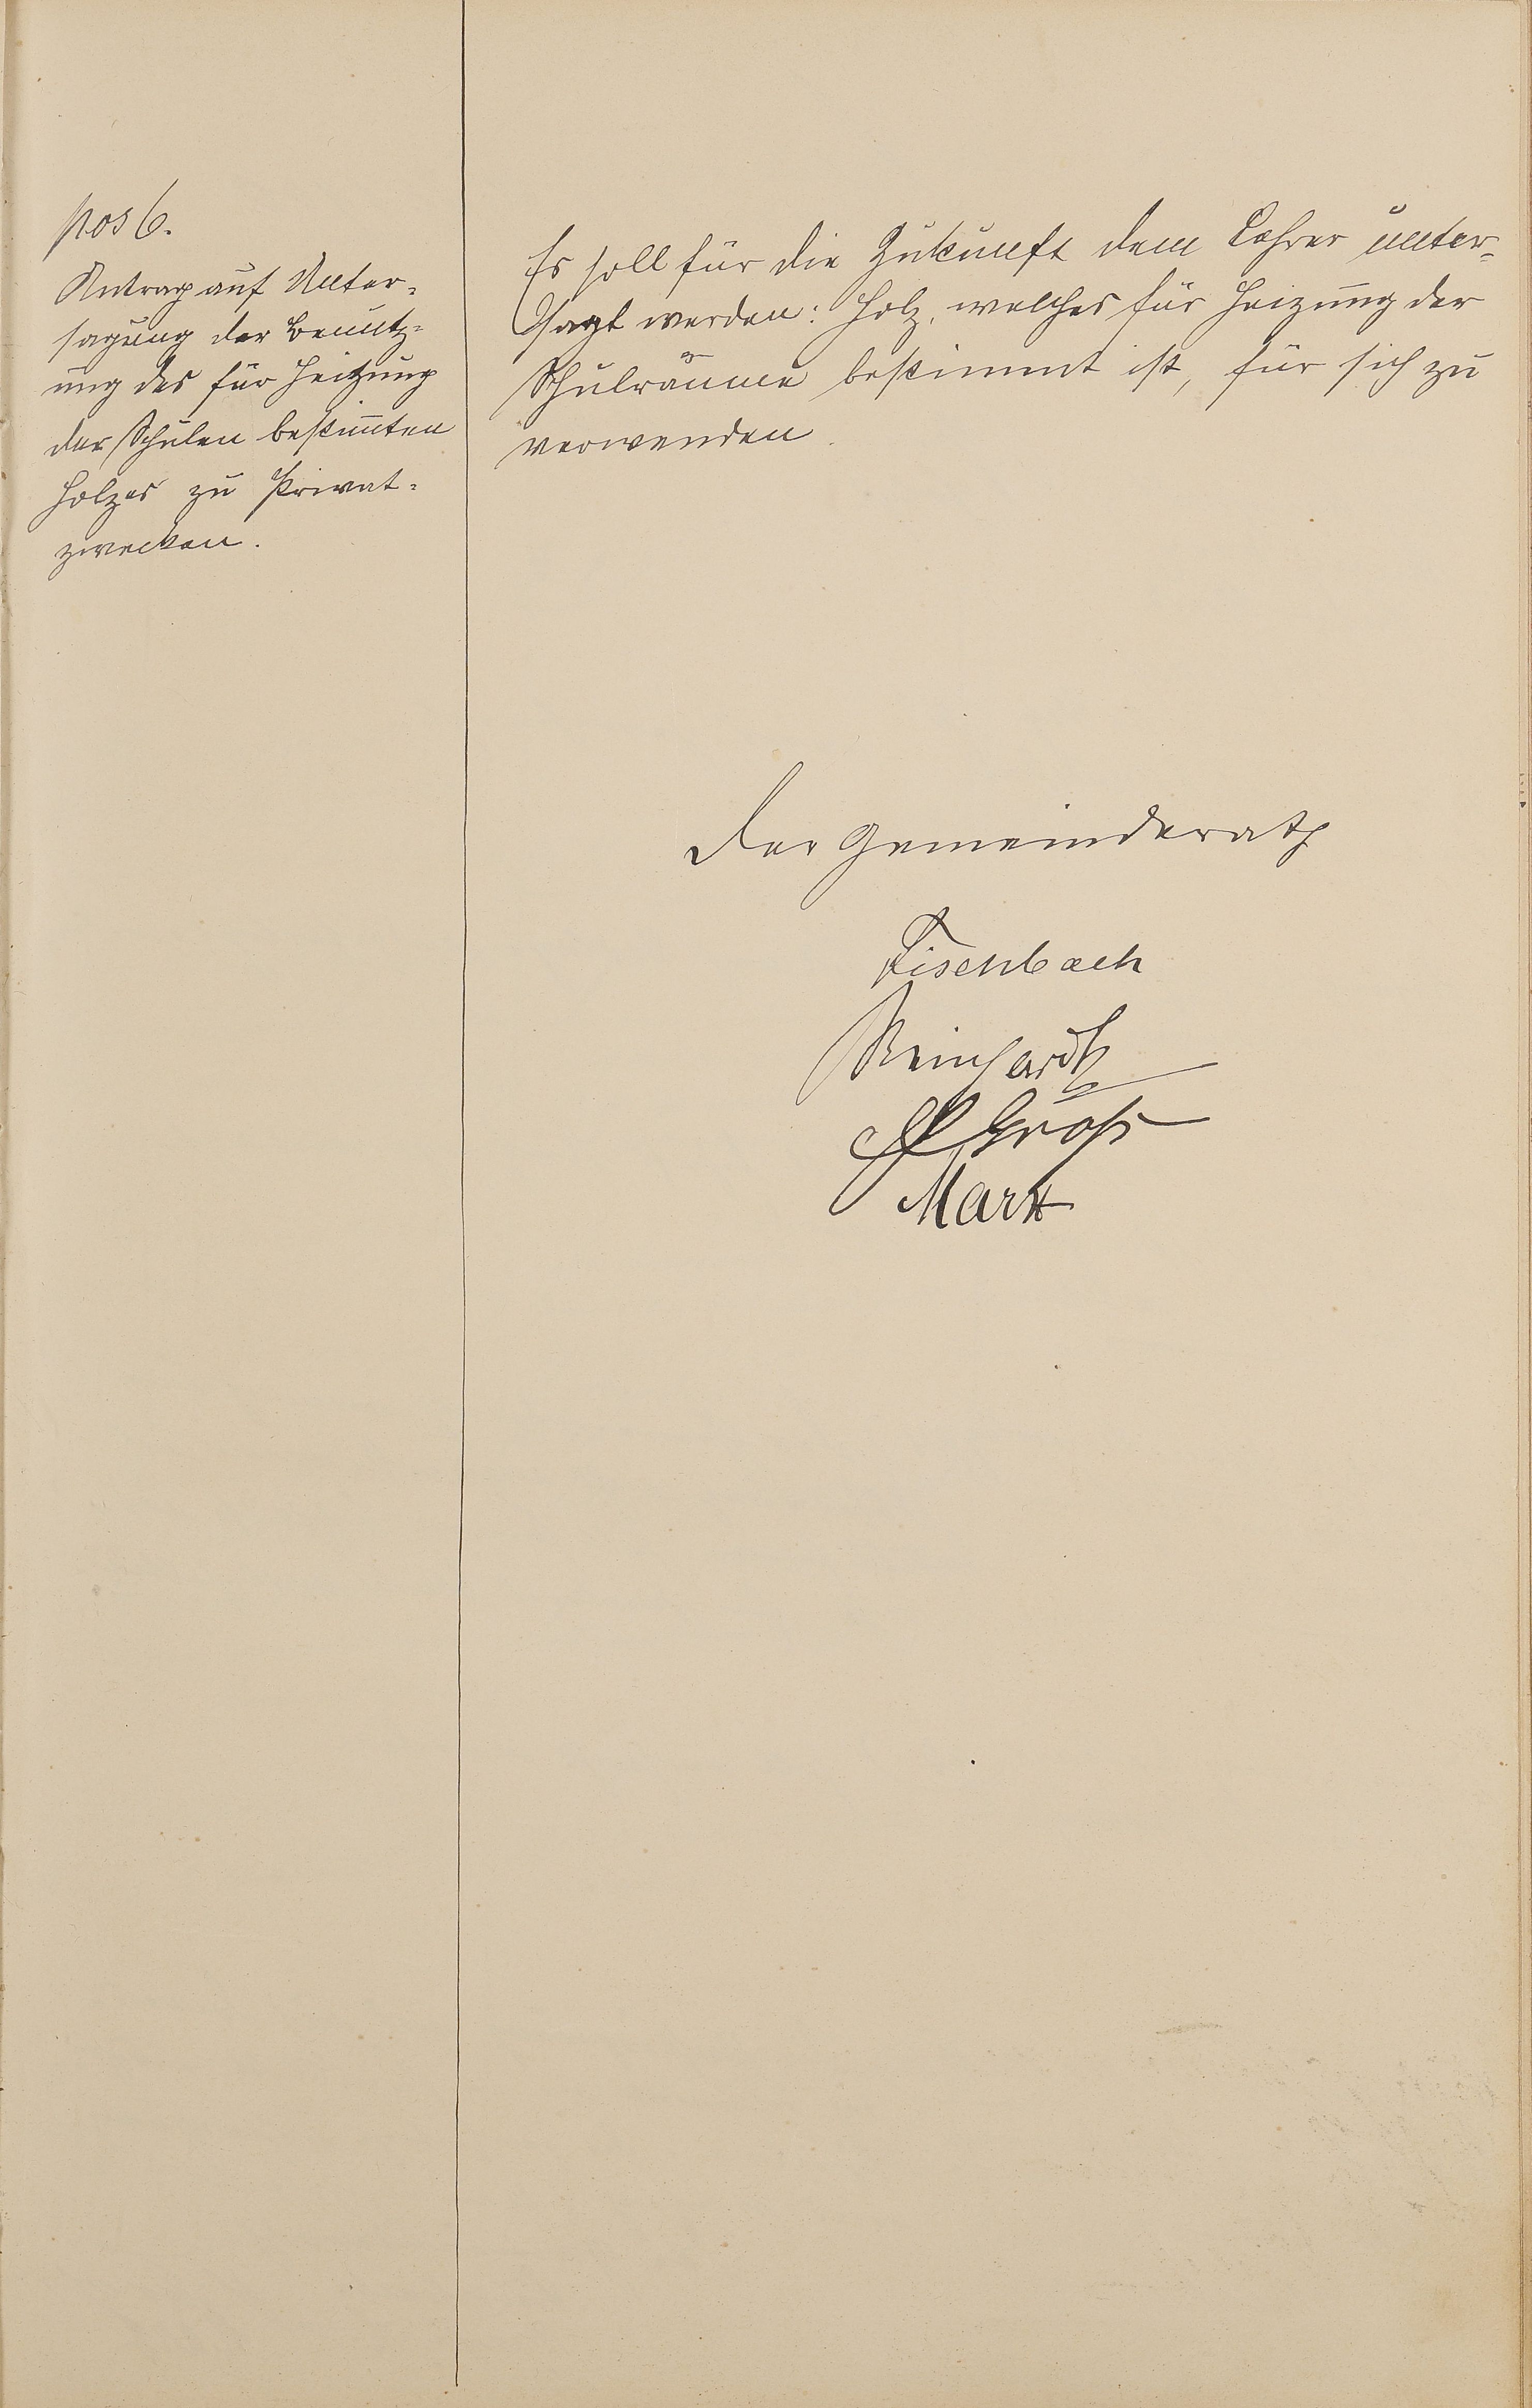 pos 6.
Antrag auf Unter-
sagung der Benutz-
ung des für Heitzung
der Schulen bestim̅ten
Holzes zu Privat-
zwecken.
Es soll für die Zukunft dem Lehrer unter-
sagt werden: Holz, welches für Heizung der
Schulräume bestimmt ist, für sich zu
verwenden.
Der Gemeinderath
Eisenbach
Reinhardt
Groß
Marx